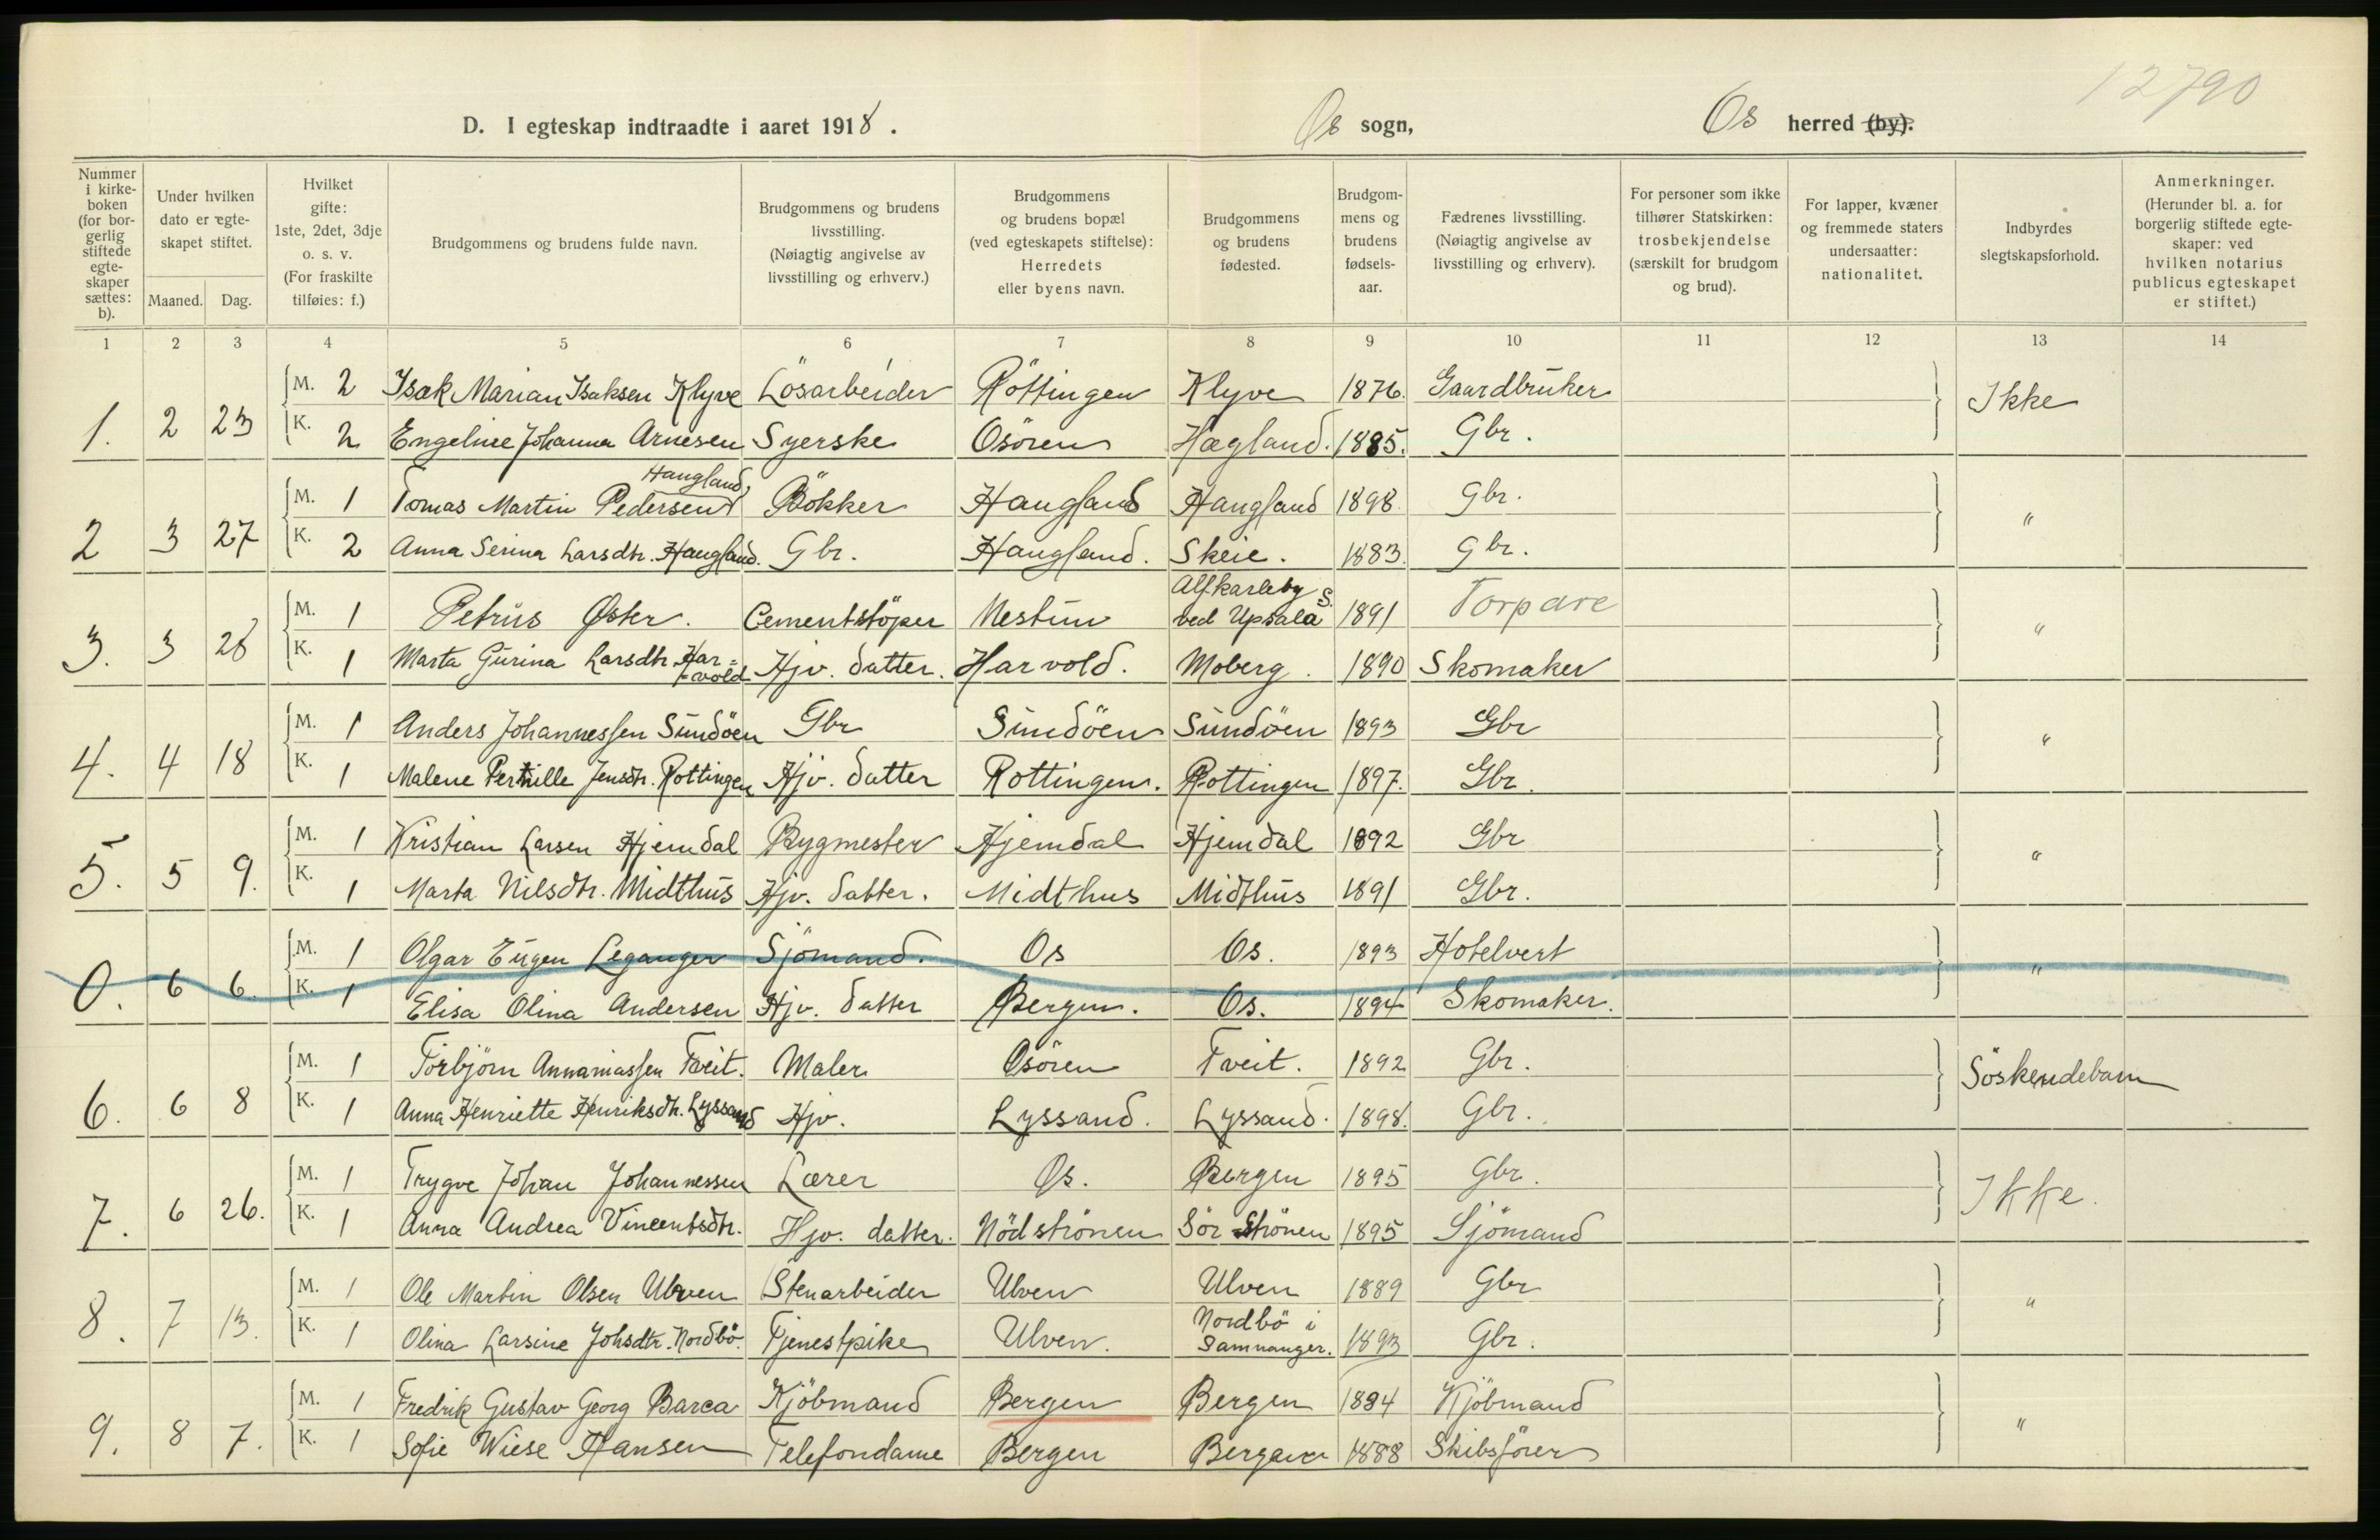 12790
D. I egteskap indtraadte i aaret 1918. Os sogn, Os herred (by).
Nummer i kirkeboken (for borgerlig stiftede egteskaper sættes: b).
Under hvilken dato er egteskapet stiftet.
Maaned. Dag.
Hvilket gifte: 1ste, 2det, 3dje o. s. v. (For fraskilte tilføies: f.)
Brudgommens og brudens fulde navn.
Brudgommens og brudens livsstilling. (Nøiagtig angivelse av livsstilling og erhverv.)
Brudgommens og brudens bopæl (ved egteskapets stiftelse): Herredets eller byens navn.
Brudgommens og brudens fødested.
Brudgommens og brudens fødselsaar.
Fædrenes livsstilling. (Nøiagtig angivelse av livsstilling og erhverv).
For personer som ikke tilhører Statskirken: trosbekjendelse (særskilt for brudgom og brud).
For lapper, kvæner og fremmede staters undersaatter: nationalitet.
Indbyrdes slegtskapsforhold.
Anmerkninger. (Herunder bl. a. for borgerlig stiftede egteskaper: ved hvilken notarius publicus egteskapet er stiftet.)
1 2 3 4 5 6 7 8 9 10 11 12 13 14
1. 2 23 M. 2 Isak Marian Isaksen Klyve Lösarbeider Röttingen Klyve 1876. Gaardbruker Ikke
K. 2 Engeline Johanna Arnesen Syerske Osören Hægland. 1885. Gbr.
2 3 27 M. 1 Tomas Martin Pedersen Haugland Bökker Haugland Haugland 1898. Gbr. "
K. 2 Anna Serina Larsdtr. Haugland. Gbr. Haugland. Skeie. 1883. Gbr.
3. 3 28 M. 1 Petrus Øster. Cementstöper Nestun Alfkarleby S. ved Upsala 1891 Torpare "
K. 1 Marta Gurina Larsdtr. Har=vold Hjv. datter. Harvold. Moberg. 1890 Skomaker
4. 4 18 M. 1 Anders Johannessen Sundöen Gbr Sundöen Sundöen 1893 Gbr "
K. 1 Malene Pernille Jensdtr. Rottingen Hjv. datter Rottingen. Rottingen 1897. Gbr.
5. 5 9. M. 1 Kristian Larsen Hjemdal Bygmester Hjemdal Hjemdal 1892 Gbr "
K. 1 Marta Nilsdtr. Midthus Hjv. datter. Midthus Midthus 1891 Gbr.
0. 6 6. M. 1 Olgar Eugen Leganger Sjömand. Os Os. 1893 Hotelvert "
K. 1 Elisa Olina Andersen Hjv. datter Bergen. Os. 1894 Skomaker.
6. 6 8 M. 1 Torbjörn Annaniassen Tveit. Maler Osören Tveit. 1892 Gbr. Söskendebarn
K. 1 Anna Henriette Henriksdtr. Lyssand Hjv. Lyssand. Lyssand. 1898. Gbr.
7. 6 26. M. 1 Trygve Johan Johannessen Lærer Os. Bergen 1895 Gbr. Ikke.
K. 1 Anna Andrea Vincentsdtr. Hjv. datter. Nödströnen Sör Strönen 1895 Sjömand
8. 7 13. M. 1 Ole Martin Olsen Ulven Stenarbeider Ulven Ulven 1889 Gbr "
K. 1 Olina Larsine Johsdtr. Nordbö. Tjenestpike Ulven. Nordbö i Samnanger. 1893 Gbr.
9. 8 7. M. 1 Fredrik Gustav Georg Barca Kjöbmand Bergen Bergen 1884 Kjöbmand "
K. 1 Sofie Wiese Hansen Telefondame Bergen Bergen 1888 Skibsförer